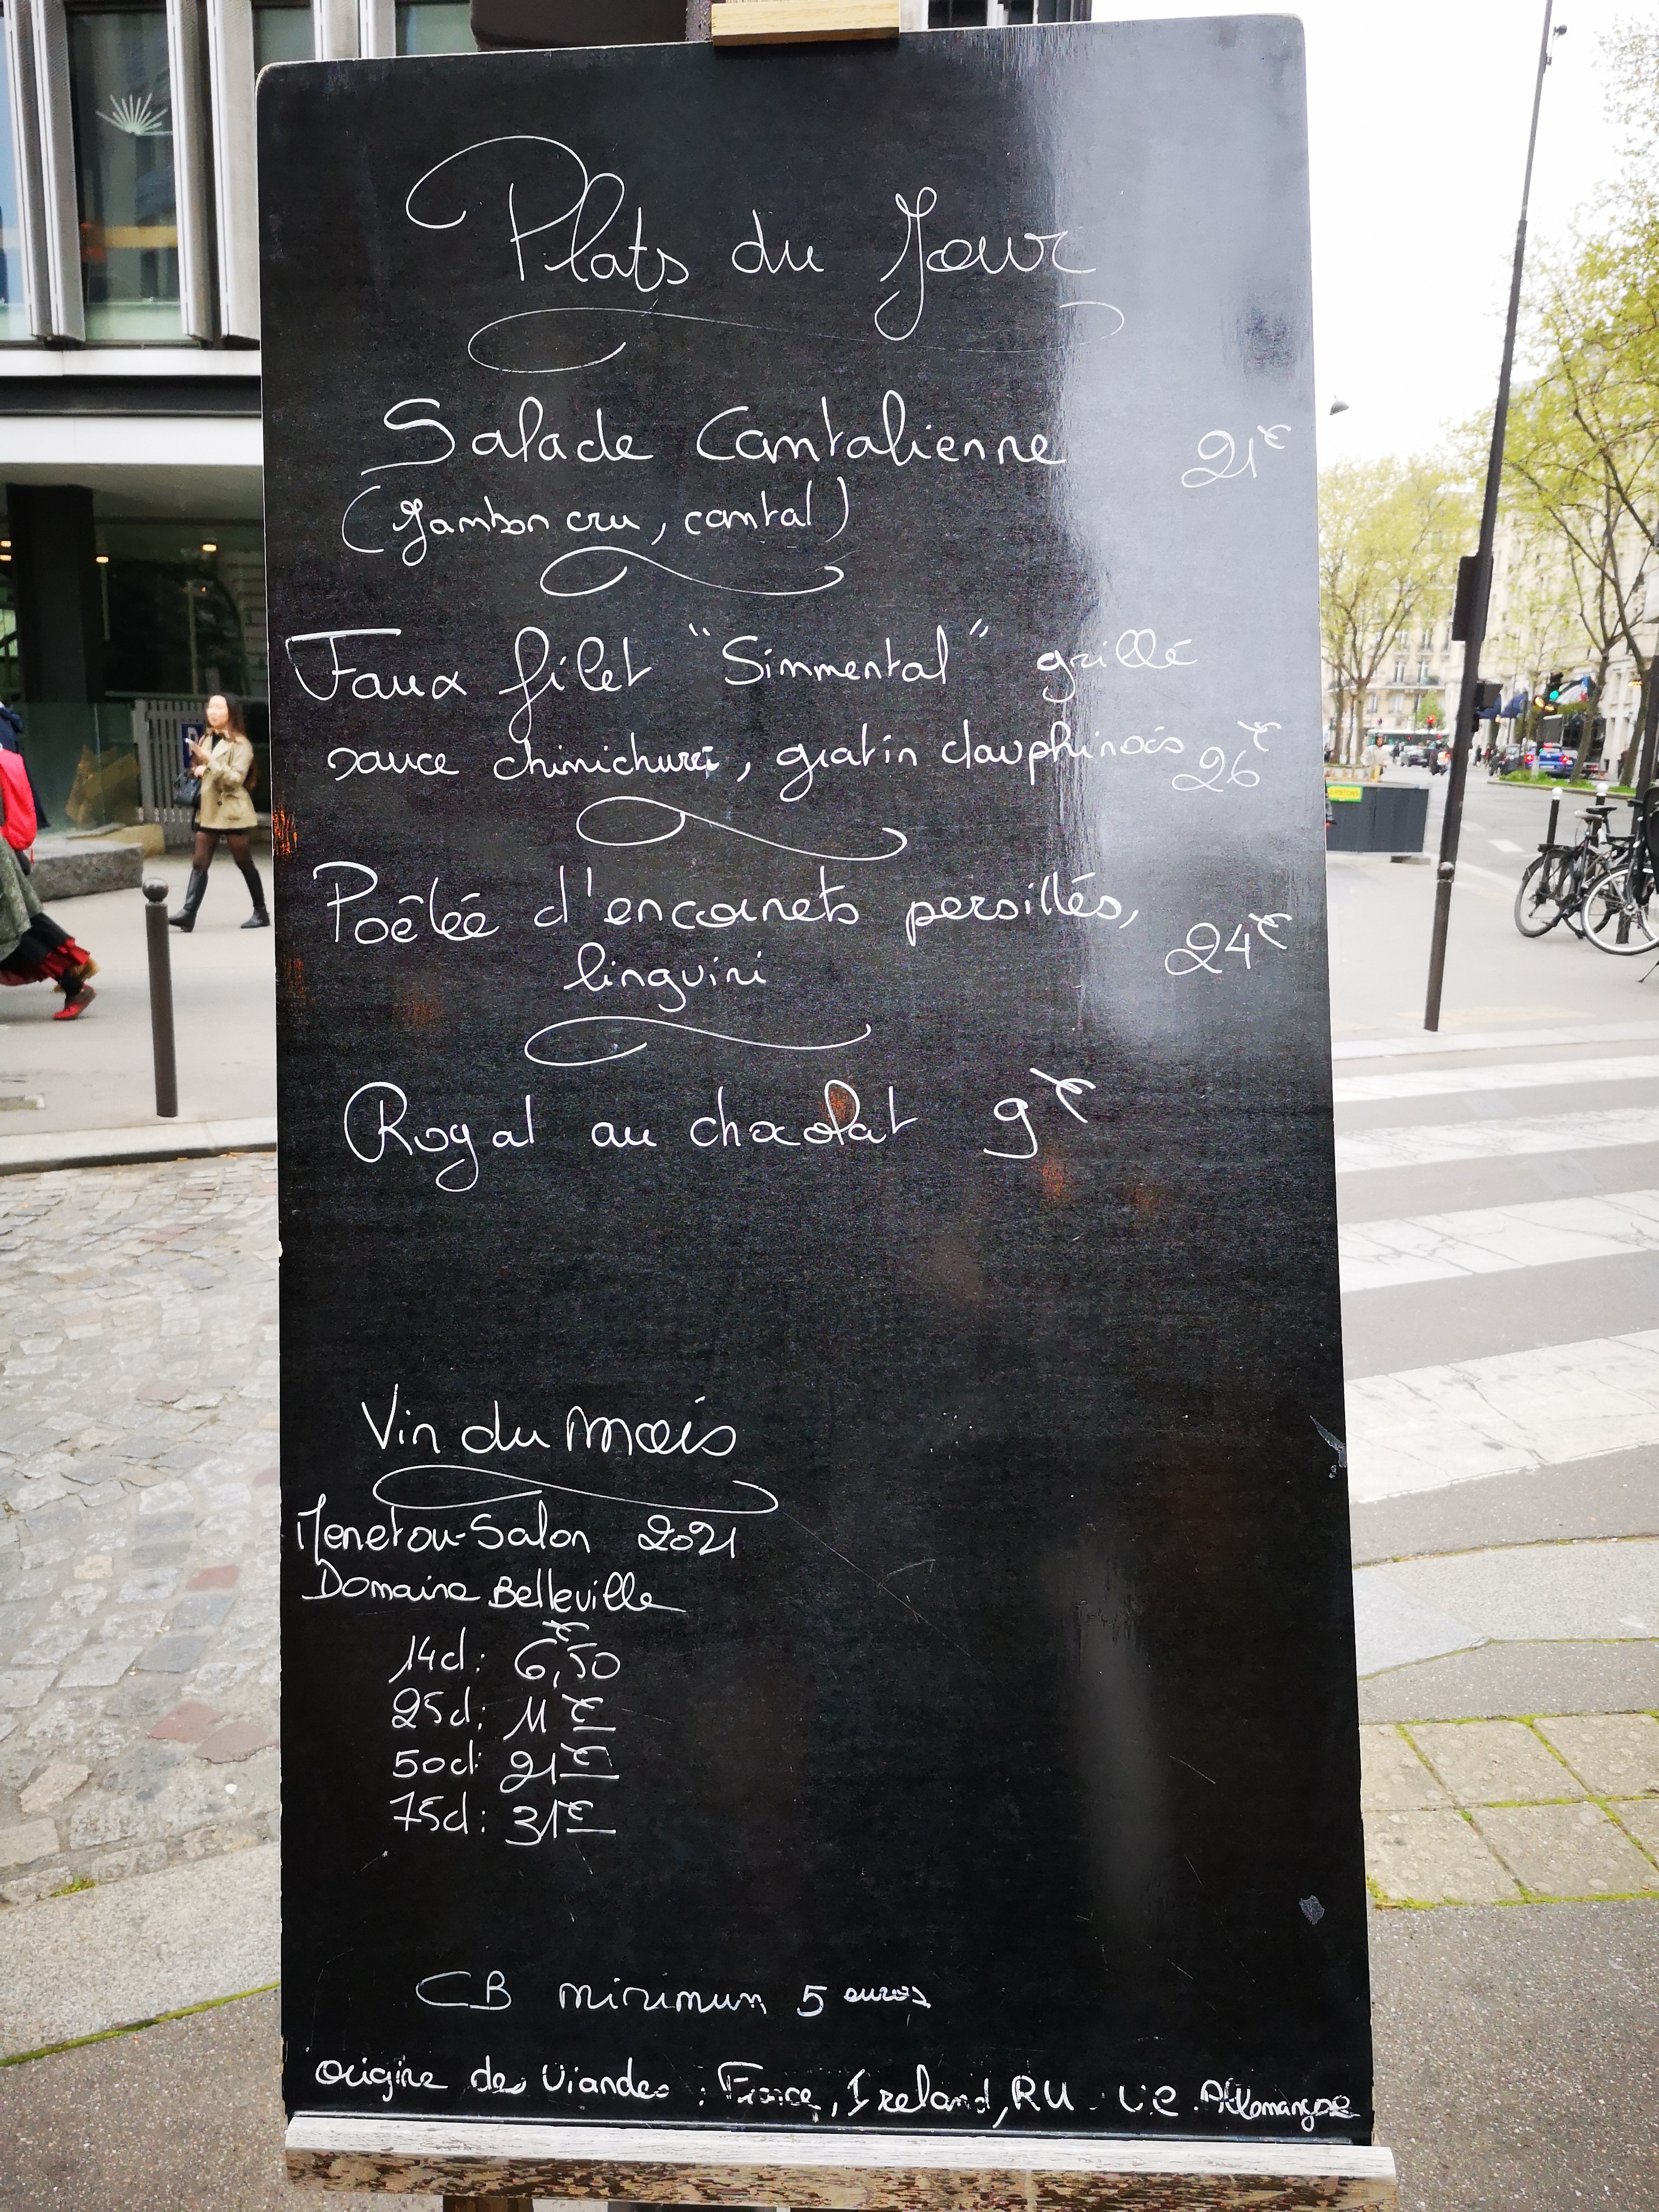 Plats du Jour
Salade Cantalienne 21€
(Jambon cru, cantal)
Faux filet "Simmental" grillé
sauce chimichurri, gratin dauphinois 26€
Poêlée d'encornets persillés, 24€
linguini
Royal au chocolat 9€
Vin du mois
Menetou-Salon 2021
Domaine Belleville
14cl: 6€,50
25cl: 11€
50cl: 21€
75cl: 31€
CB minimum 5 euros
Origine des Viandes : France, Ireland, RU. UE. Allemangne